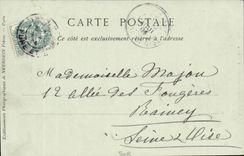 CARTE POSTALE
Ce côté est exclusivement réservé à l'adresse
Mademoiselle Majou
12 allée des Fougères
Raincy
Seine & Oise
Etablissements Photographiques de NEURDEIN Frères. — Paris